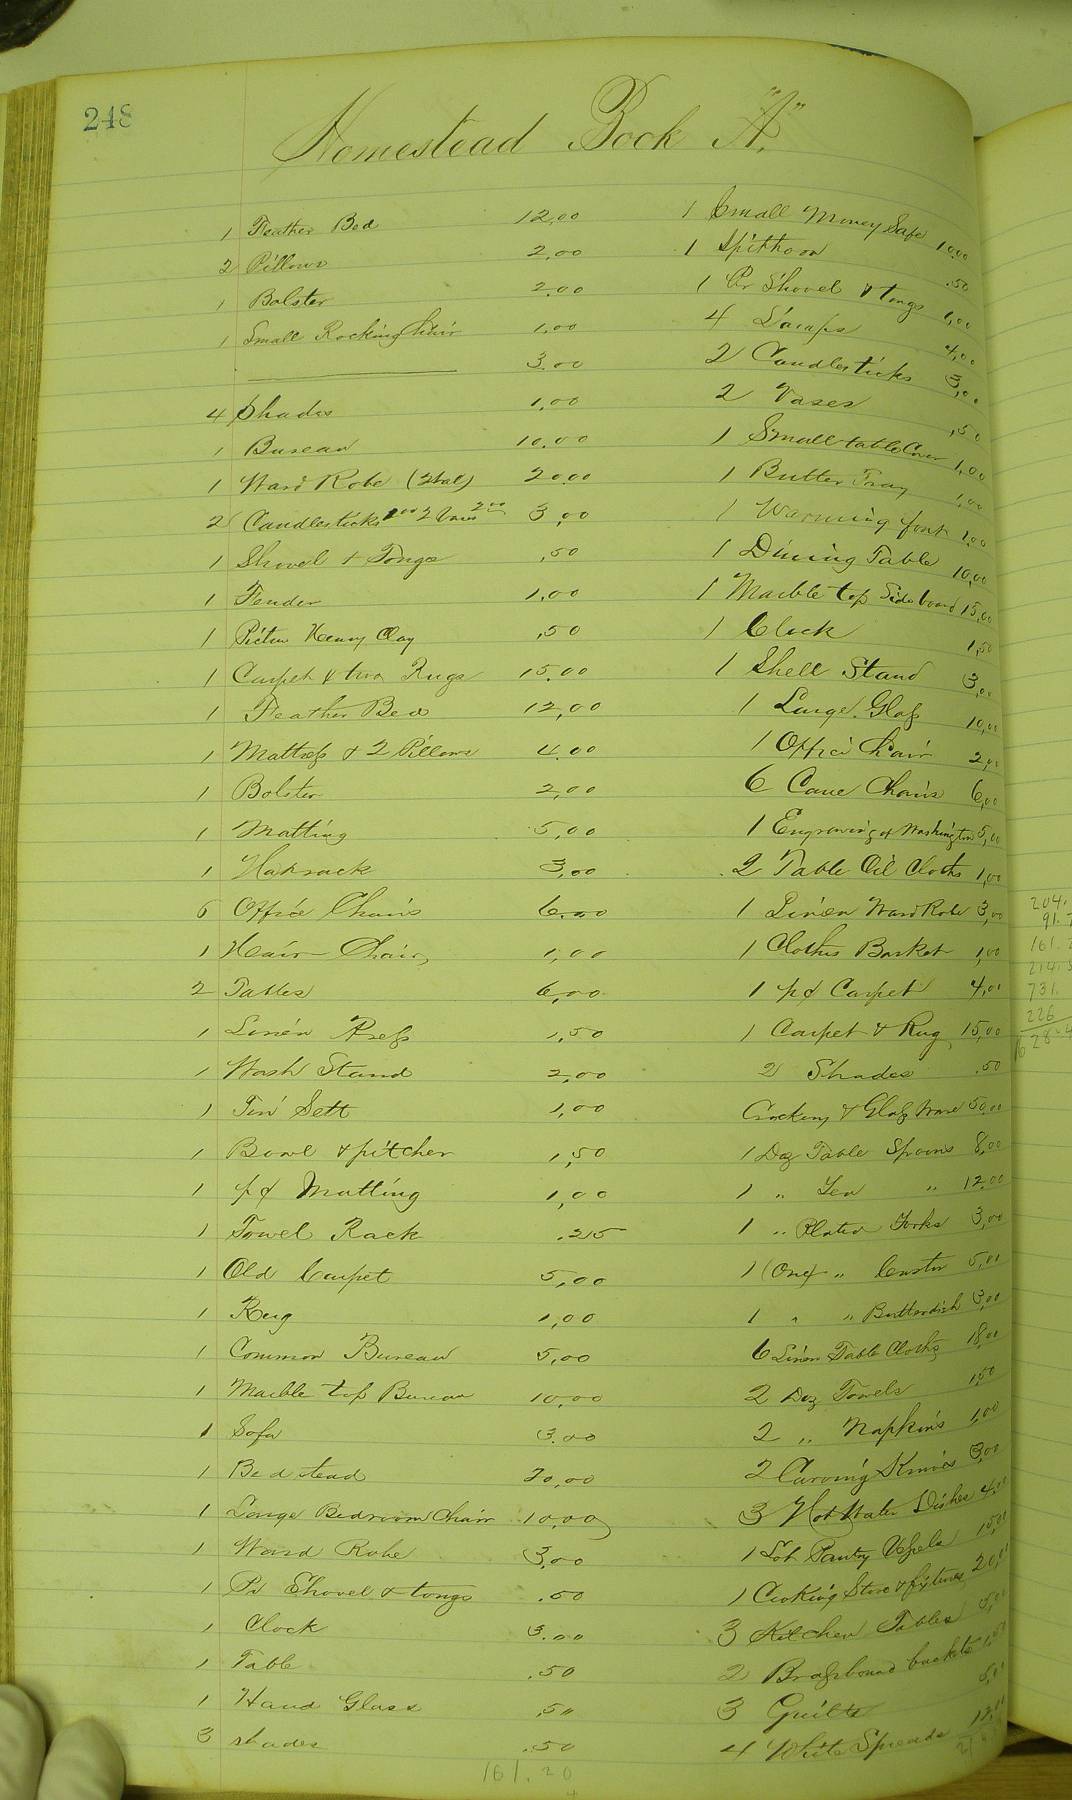 248
Homestead Book "A."
1 Feather Bed 12,00
2 Pillows 2,00
1 Bolster 2.00
1 Small Rocking Chair 1,00
3.00
4 Shades 1,00
1 Bureau 10,00
1 Ward Robe 20.00
2 Candlesticks 1 00 2 Vases 2 00 3,00
1 Shovel + Tongs ,50
1 Fender 1,00
1 Pictur Henry Clay ,50
1 Carpet & two Rugs 15.00
1 Feather Bed 12,00
1 Mattress + 2 Pillows 4.00
1 Bolster 2,00
1 Matting 5,00
1 Hatrack 3,00
6 Office Chairs 6.00
1 Hair Chair 1,00
2 Tables 6,00
1 Linen Press 1,50
1 Wash Stand 2,00
1 Tin Sett 1,00
1 Bowl & pitcher 1,50
1 pc Matting 1,00
1 Towel Rack .25
1 Old Carpet 5,00
1 Rug 1,00
1 Common Bureau 5,00
1 Marble top Bureau 10,00
1 Sofa 3.00
1 Bedstead 20,00
1 Large Bedroom Chair 10.00
1 Ward Robe 3,00
1 Pr Shovel & tongs .50
1 Clock 3.00
1 Table .50
1 Hand Glass .50
3 shades .50
161.20
1 Small Money Safe 10,00
1 Spittoon .50
1 Pr Shovel & tongs 1,00
4 Lamps 4,00
2 Candlesticks 3,00
2 Vases ,50
1 Small table Cover 1,00
1 Butter Tray 1,00
1 Warming 1,00
1 Dining Table 10,00
1 Marble top Sideboard 15,00
1 Clock 1,50
1 Shell Stand 3,00
1 Large Glass 10,00
1 Office Chair 2,00
6 Cane Chairs 6,00
1 Engraving of Washington 5,00
2 Table Oil Cloths 1,00
1 Linen Ward Robe 3,00
1 Clothes Basket 1,00
1 pc Carpet 4,00
1 Carpet & Rug 15,00
2 Shades .50
Crockery & Glass Ware 50.00
1 Doz Table Spoons 8,00
1 " Tea " 12.00
1 " Plated Forks 3,00
1 (One) " Castor 5,00
1 " " Butterdish 3,00
6 Linen Table Cloths 18,00
2 Doz Towels 1,50
2 " Napkins 1,00
2 Carving Knives 3,00
3 Hot Water Dishes 4,00
1 Lot Pantry Vessels 15,00
1 Cooking Stove & fixtures 20,00
3 Kitchen Tables
2 Brassbound buckets 1,50
3 Quilts
4 White Spreads 12,00
204.
91.
161.2
214.
731.
226